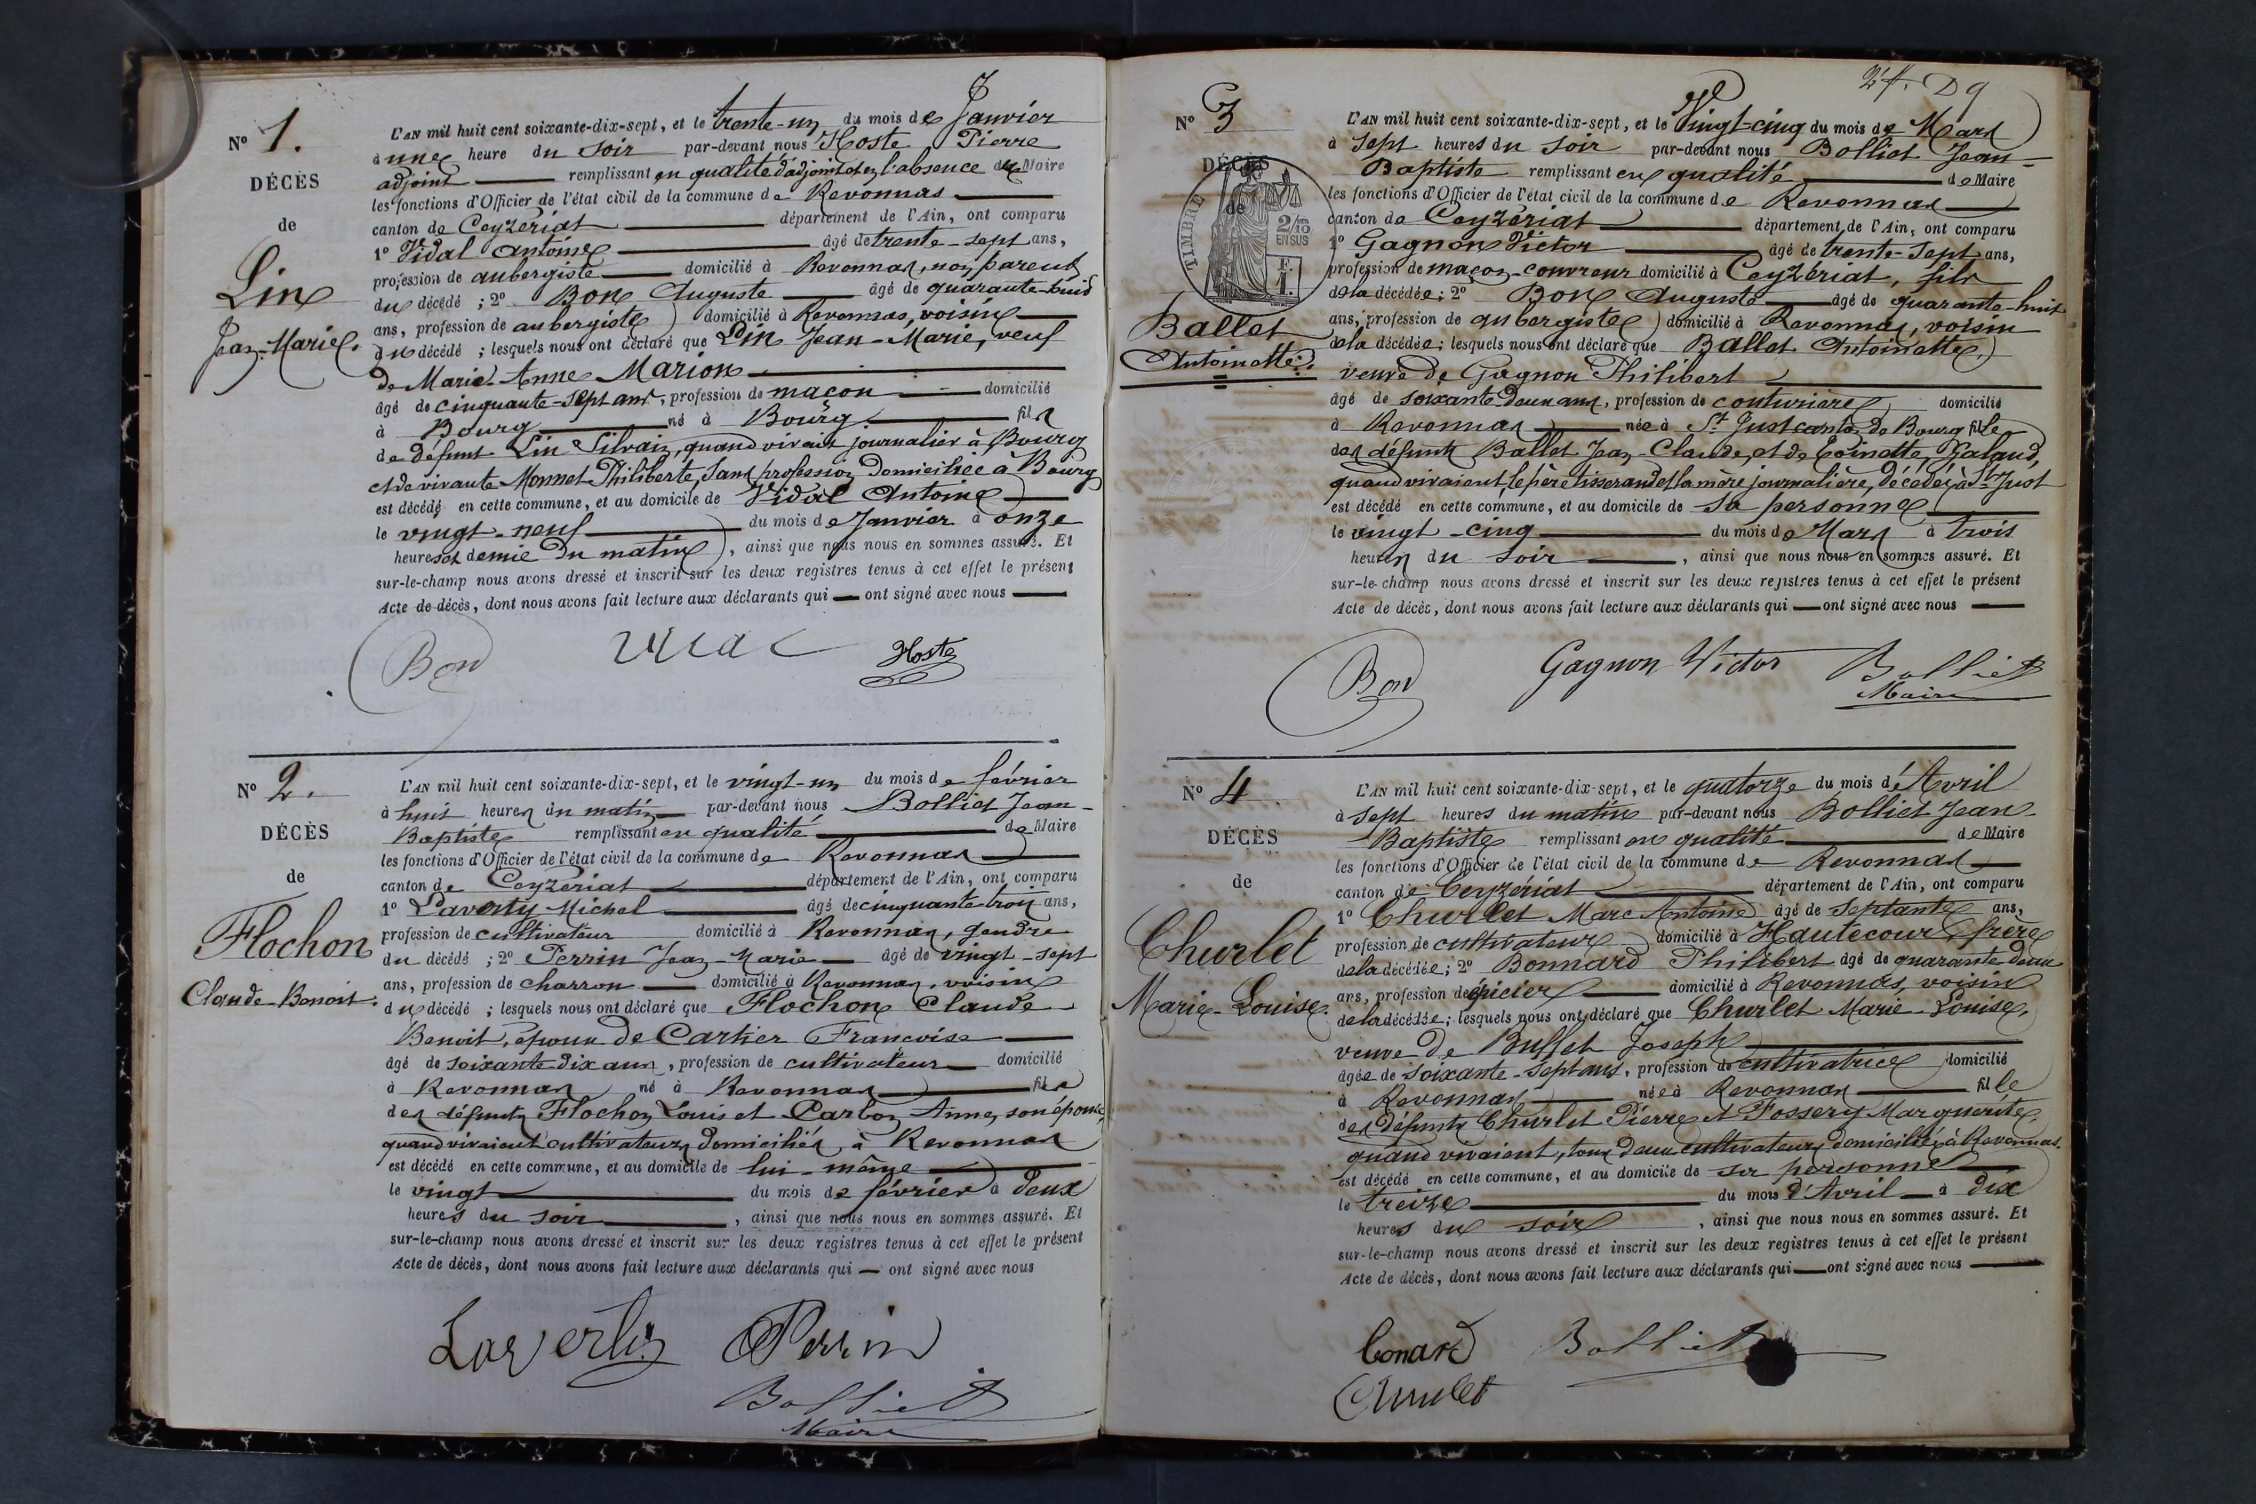 N° 1.
DÉCÈS
de
Lin
Jean-Marie.
L'AN mil huit cent soixante-dix-sept, et le trente-un du mois de Janvier
à une heure du soir par-devant nous Hoste Pierre
adjoint remplissant en qualité d'adjoint et en l'absence du Maire
les fonctions d'Officier de l'état civil de la commune de Revonnas
canton de Ceyzériat département de l'Ain, ont comparu
1° Vidal Antoine âgé de trente-sept ans,
profession de aubergiste domicilié à Revonnas, non parent
du décédé ; 2° Bon Auguste âgé de quarante-huit
ans, profession de aubergiste domicilié à Revonnas, voisin
du décédé ; lesquels nous ont déclaré que Lin Jean-Marie, veuf
de Marie-Anne Marion
âgé de cinquante-sept ans, profession de maçon domicilié
à Bourg né à Bourg fils
de défunt Lin Silvain, quand vivait journalier à Bourg
et de vivante Monnet Philiberte, sans profession domiciliée à Bourg
est décédé en cette commune, et au domicile de Vidal Antoine
le vingt-neuf du mois de Janvier à onze
heures et demie du matin, ainsi que nous nous en sommes assuré. Et
sur-le-champ nous avons dressé et inscrit sur les deux registres tenus à cet effet le présent
Acte de décès, dont nous avons fait lecture aux déclarants qui ont signé avec nous
Bon Vidal Hoste
N° 2.
DÉCÈS
de
Flochon
Claude-Benoit.
L'AN mil huit cent soixante-dix-sept, et le vingt-un du mois de février
à huit heures du matin par-devant nous Bolliet Jean-
Baptiste remplissant en qualité de Maire
les fonctions d'Officier de l'état civil de la commune de Revonnas
canton de Ceyzériat département de l'Ain, ont comparu
1° Laverty Michel âgé de cinquante trois ans,
profession de cultivateur domicilié à Revonnas, gendre
du décédé ; 2° Perrin Jean-Marie âgé de vingt-sept
ans, profession de charron domicilié à Revonnas, voisin
du décédé ; lesquels nous ont déclaré que Flochon Claude
Benoit, époux de Cartier Françoise
âgé de soixante-dix ans, profession de cultivateur domicilié
à Revonnas né à Revonnas fils
des défunts Flochon Louis et Carbon Anne, son épouse,
quand vivaient cultivateurs domiciliés à Revonnas
est décédé en cette commune, et au domicile de lui-même
le vingt du mois de février à deux
heures du soir, ainsi que nous nous en sommes assuré. Et
sur-le-champ nous avons dressé et inscrit sur les deux registres tenus à cet effet le présent
Acte de décès, dont nous avons fait lecture aux déclarants qui ont signé avec nous
Laverty Perrin
Bolliet
Maire
N° 3
DÉCÈS
de
TIMBRE
2/10
EN SUS
F.
1.
Ballet
Antoinette.
L'AN mil huit cent soixante-dix-sept, et le Vingt-cinq du mois de Mars
à sept heures du soir par-devant nous Bolliet Jean-
Baptiste remplissant en qualité de Maire
les fonctions d'Officier de l'état civil de la commune de Revonnas
canton de Ceyzériat département de l'Ain, ont comparu
1° Gagnon Victor âgé de trente-sept ans,
profession de maçon-couvreur domicilié à Ceyzériat, fils
de la décédée ; 2° Bon Auguste âgé de quarante-huit
ans, profession de aubergiste domicilié à Revonnas, voisin
de la décédée ; lesquels nous ont déclaré que Ballet Antoinette,
veuve de Gagnon Philibert
âgé de soixante-deux ans, profession de couturière domicilié
à Revonnas née à St Just canton de Bourg fille
des défunts Ballet Jean-Claude, et de Toinette Galand,
quand vivaient, le père tisserand et la mère journalière, décédés à St Just
est décédé en cette commune, et au domicile de sa personne
le vingt-cinq du mois de Mars à trois
heures du soir, ainsi que nous nous en sommes assuré. Et
sur-le-champ nous avons dressé et inscrit sur les deux registres tenus à cet effet le présent
Acte de décès, dont nous avons fait lecture aux déclarants qui ont signé avec nous
Bon Gagnon Victor Bolliet
Maire
N° 4
DÉCÈS
de
Churlet
Marie-Louise.
L'AN mil huit cent soixante-dix-sept, et le quatorze du mois d'Avril
à sept heures du matin par-devant nous Bolliet Jean-
Baptiste remplissant en qualité de Maire
les fonctions d'Officier de l'état civil de la commune de Revonnas
canton de Ceyzériat département de l'Ain, ont comparu
1° Churlet Marc Antoine âgé de septante ans,
profession de cultivateur domicilié à Hautecour, frère
de la décédée ; 2° Bonnard Philibert âgé de quarante deux
ans, profession de épicier domicilié à Revonnas, voisin
de la décédée ; lesquels nous ont déclaré que Churlet Marie-Louise,
veuve de Buffet Joseph
âgée de soixante-sept ans, profession de cultivatrice domicilié
à Revonnas née à Revonnas fille
des défunts Churlet Pierre et Fossery Marguerite,
quand vivaient, tous deux cultivateurs domiciliés à Revonnas.
est décédé en cette commune, et au domicile de sa personne
le treize du mois d'Avril à dix
heures du soir, ainsi que nous nous en sommes assuré. Et
sur-le-champ nous avons dressé et inscrit sur les deux registres tenus à cet effet le présent
Acte de décès, dont nous avons fait lecture aux déclarants qui ont signé avec nous
Bonard Bolliet
Churlet